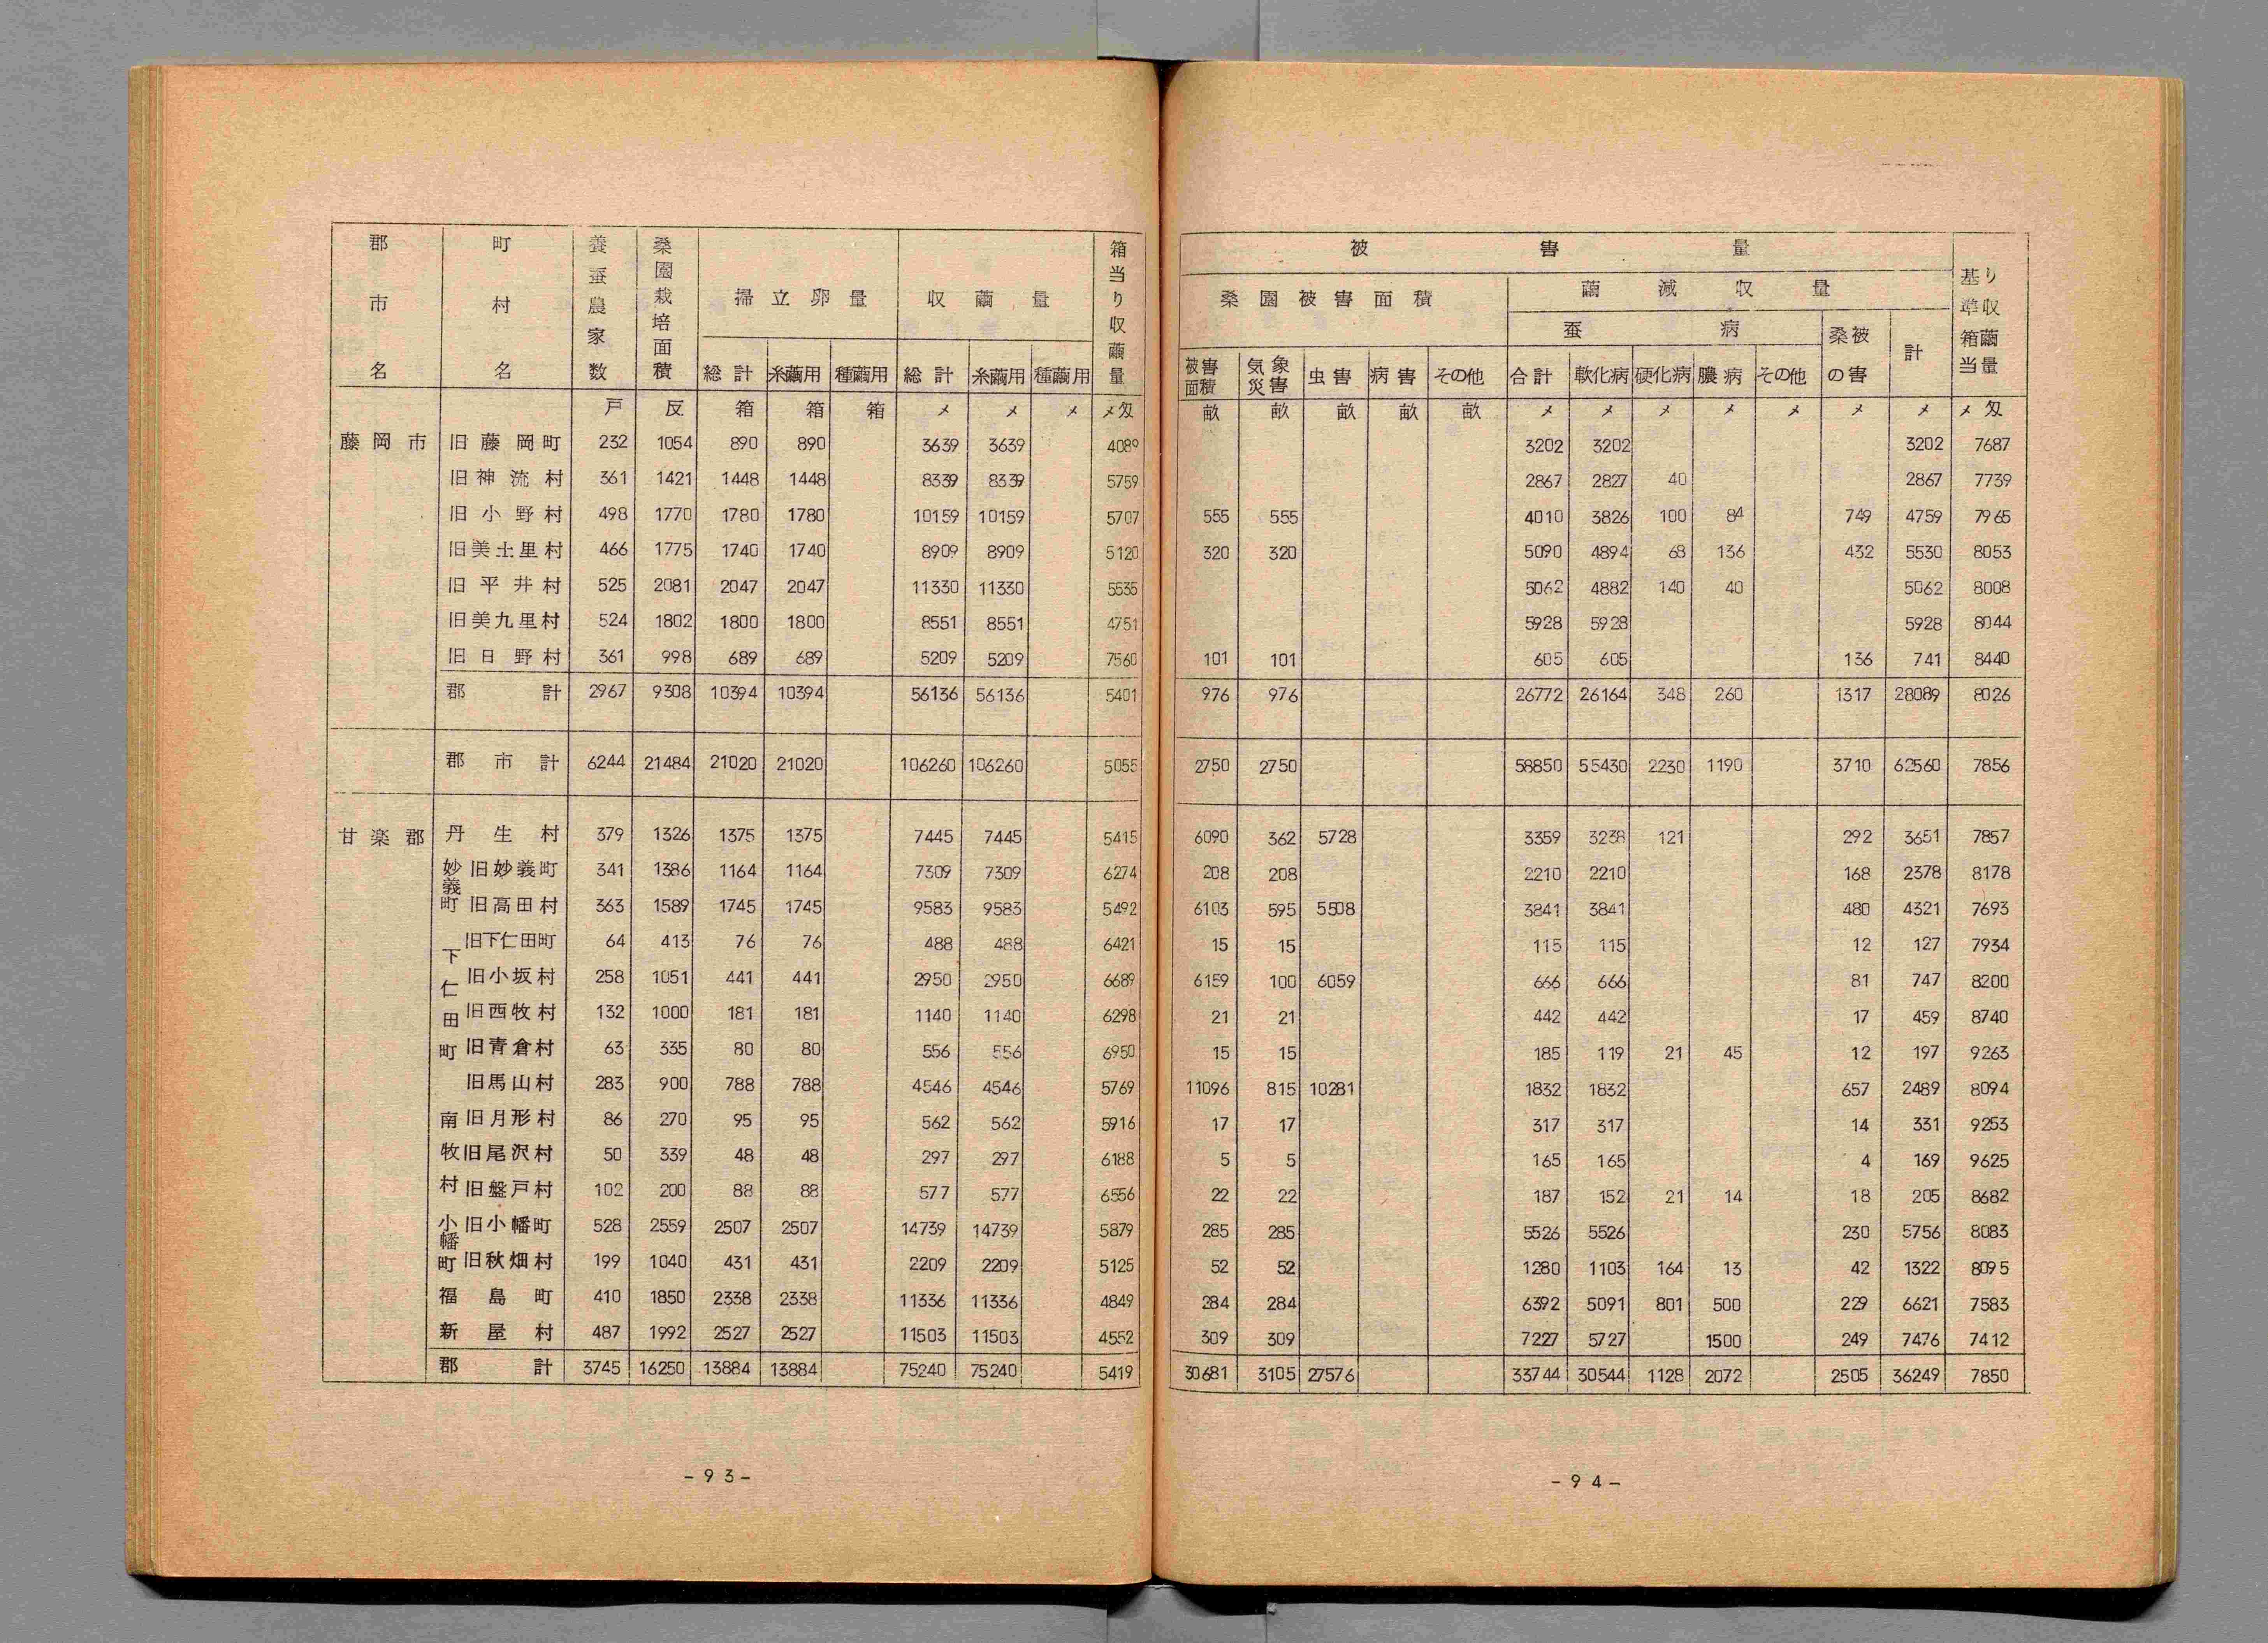 郡市名 町村名 養蚕農家数 桑園栽培面積 掃立卵量 収繭量 箱当り収繭量
総計 糸繭用 種繭用 総計 糸繭用 種繭用
戸 反 箱 箱 箱 メ メ メ メ匁
藤岡市 旧藤岡町 232 1054 890 890 3639 3639 4089
旧神流村 361 1421 1448 1448 8339 8339 5759
旧小野村 498 1770 1780 1780 10159 10159 5707
旧美土里村 466 1775 1740 1740 8909 8909 5120
旧平井村 525 2081 2047 2047 11330 11330 5535
旧美九里村 524 1802 1800 1800 8551 8551 4751
旧日野村 361 998 689 689 5209 5209 7560
郡計 2967 9308 10394 10394 56136 56136 5401
郡市計 6244 21484 21020 21020 106260 106260 5055
甘楽郡 丹生村 379 1326 1375 1375 7445 7445 5415
妙義町 旧妙義町 341 1386 1164 1164 7309 7309 6274
旧高田村 363 1589 1745 1745 9583 9583 5492
下仁田町 旧下仁田町 64 413 76 76 488 488 6421
旧小坂村 258 1051 441 441 2950 2950 6689
旧西牧村 132 1000 181 181 1140 1140 6298
旧青倉村 63 335 80 80 556 556 6950
旧馬山村 283 900 788 788 4546 4546 5769
南牧村 旧月形村 86 270 95 95 562 562 5916
旧尾沢村 50 339 48 48 297 297 6188
旧盤戸村 102 200 88 88 577 577 6556
小幡町 旧小幡町 528 2559 2507 2507 14739 14739 5879
旧秋畑村 199 1040 431 431 2209 2209 5125
福島町 410 1850 2338 2338 11336 11336 4849
新屋村 487 1992 2527 2527 11503 11503 4552
郡計 3745 16250 13884 13884 75240 75240 5419
-93-
被害量 基準箱当り収繭量
桑園被害面積 繭減収量
蚕病 桑被の害 計
被害面積 気象災害 虫害 病害 その他 合計 軟化病 硬化病 膿病 その他
畝 畝 畝 畝 畝 メ メ メ メ メ メ メ メ匁
3202 3202 3202 7687
2867 2827 40 2867 7739
555 555 4010 3826 100 84 749 4759 7965
320 320 5090 4894 68 136 432 5530 8053
5062 4882 140 40 5062 8008
5928 5928 5928 8044
101 101 605 605 136 741 8440
976 976 26772 26164 348 260 1317 28089 8026
2750 2750 58850 55430 2230 1190 3710 62560 7856
6090 362 5728 3359 3238 121 292 3651 7857
208 208 2210 2210 168 2378 8178
6103 595 5508 3841 3841 480 4321 7693
15 15 115 115 12 127 7934
6159 100 6059 666 666 81 747 8200
21 21 442 442 17 459 8740
15 15 185 119 21 45 12 197 9263
11096 815 10281 1832 1832 657 2489 8094
17 17 317 317 14 331 9253
5 5 165 165 4 169 9625
22 22 187 152 21 14 18 205 8682
285 285 5526 5526 230 5756 8083
52 52 1280 1103 164 13 42 1322 8095
284 284 6392 5091 801 500 229 6621 7583
309 309 7227 5727 1500 249 7476 7412
30681 3105 27576 33744 30544 1128 2072 2505 36249 7850
-94-